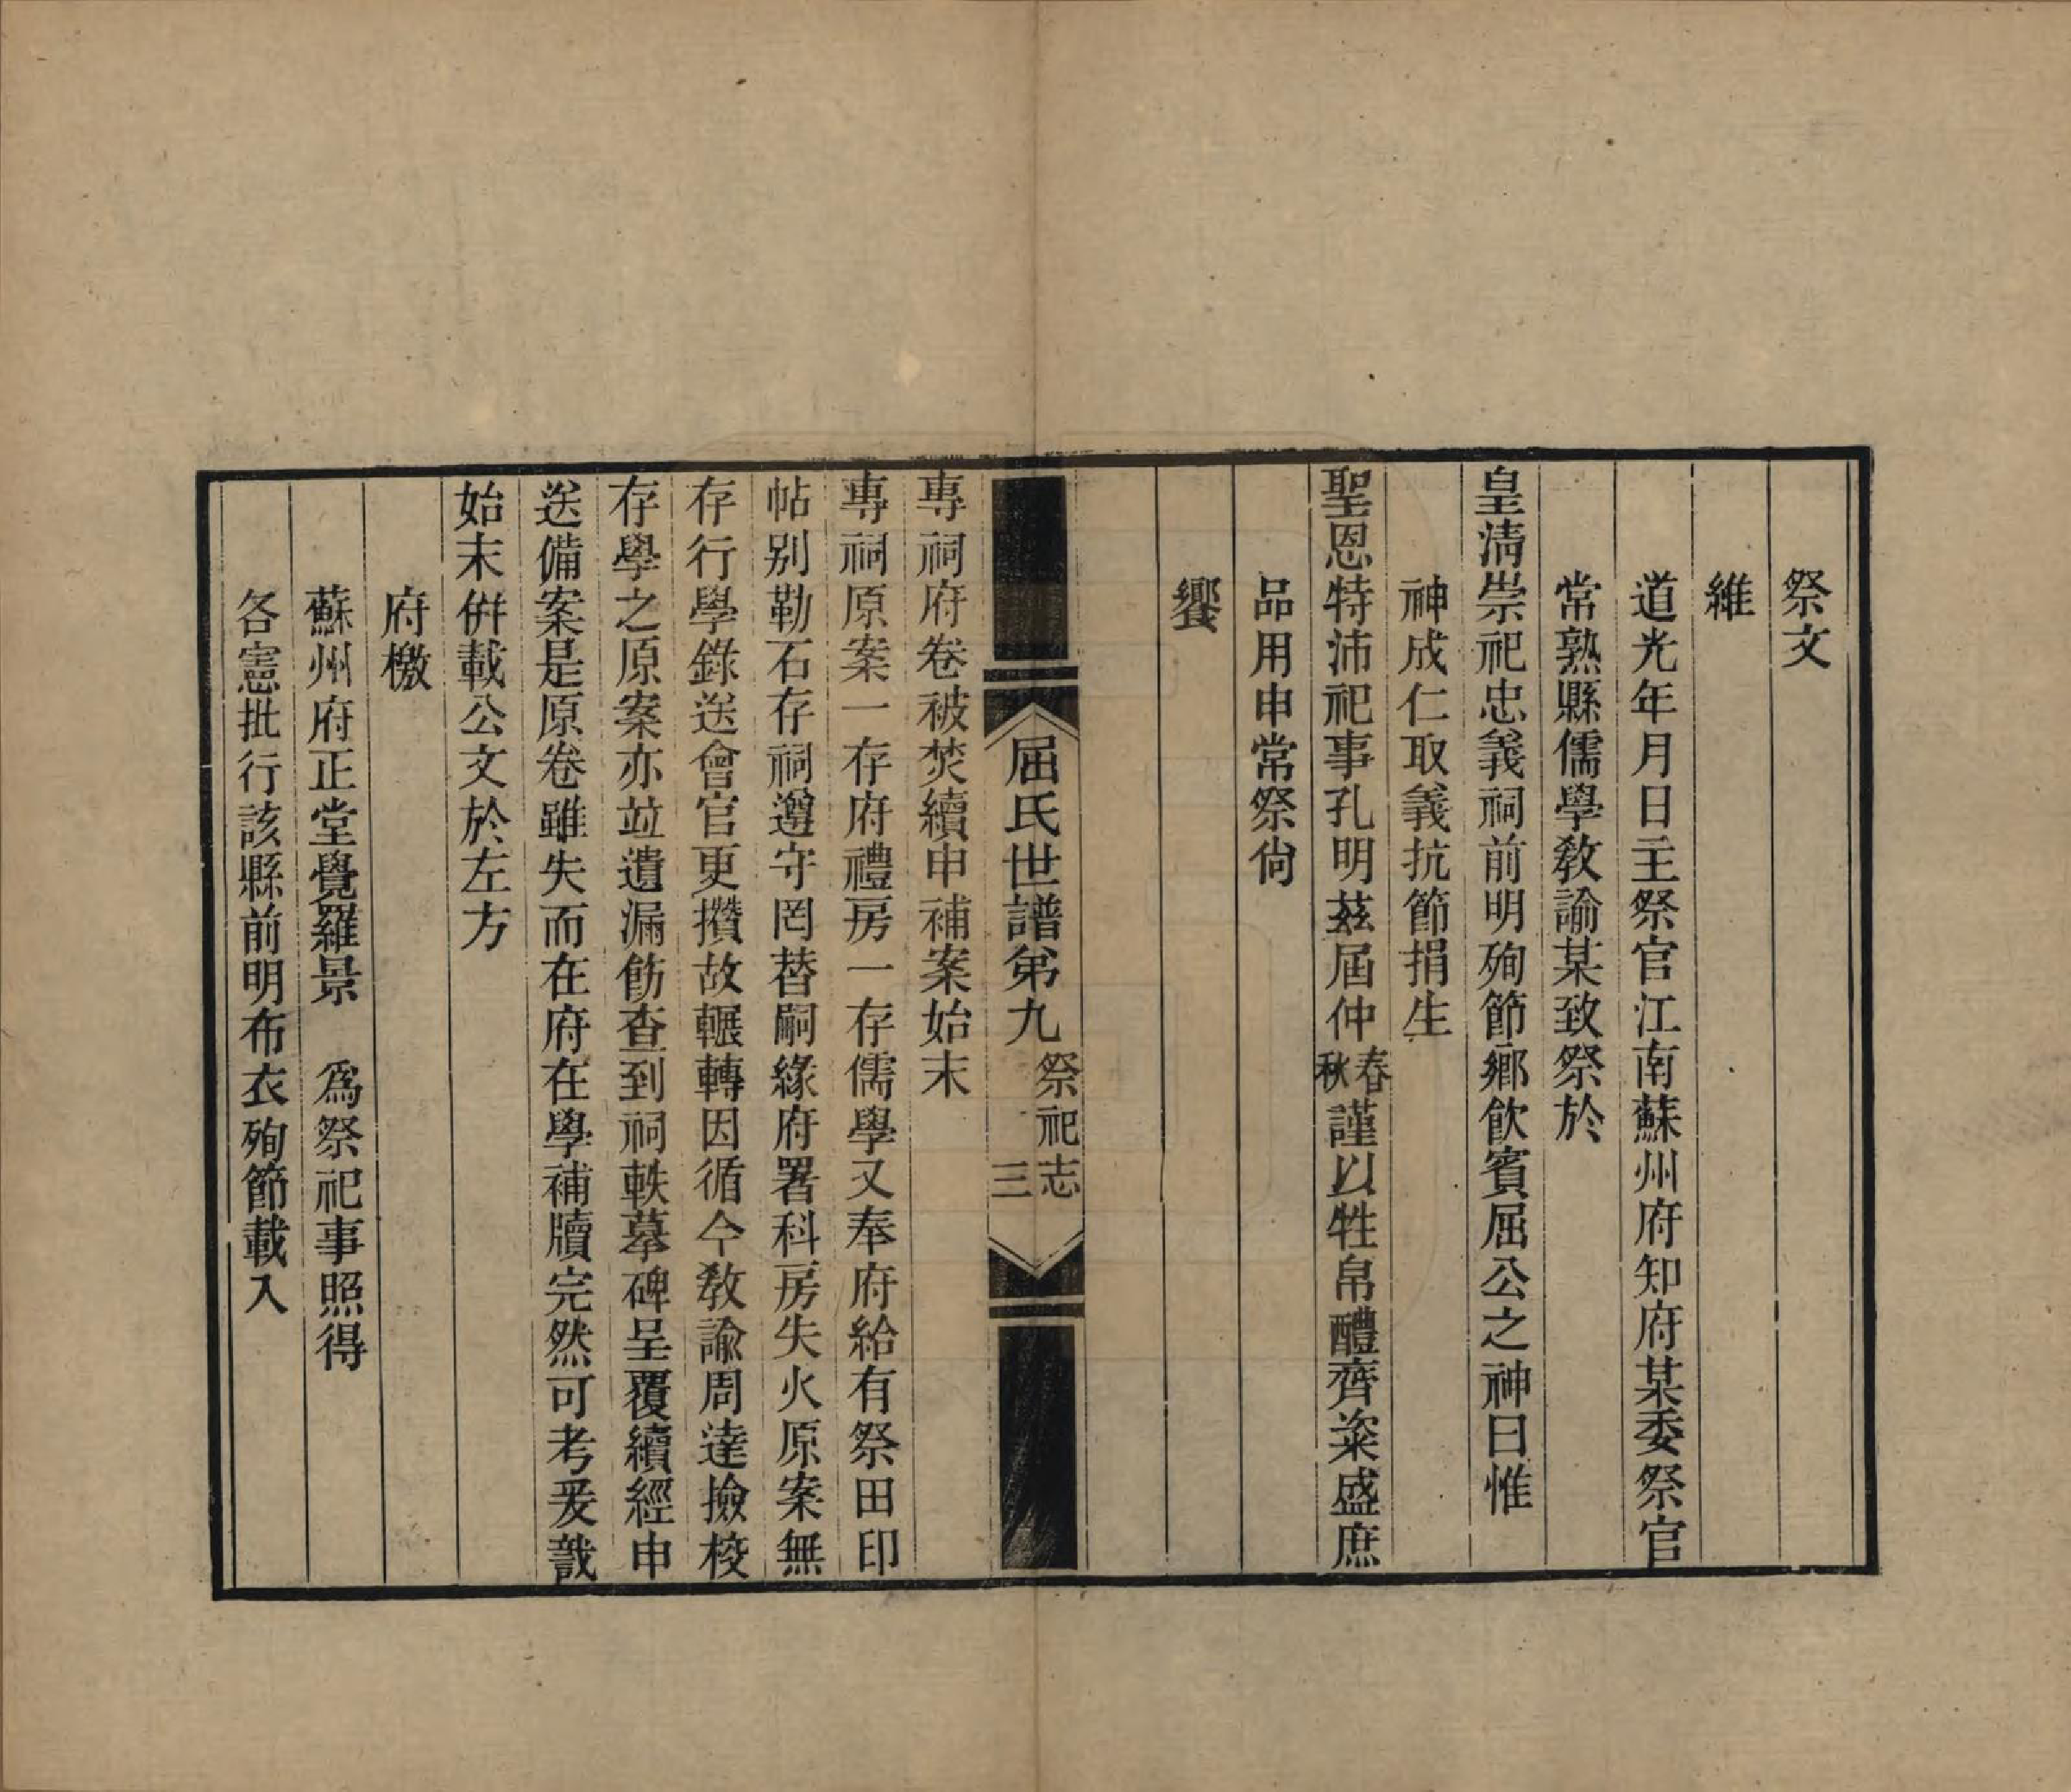 祭文
維
道光年月日主祭官江南蘇州府知府某委祭官
常熟縣儒學敎諭某致祭於
皇淸崇祀忠義祠前明殉節鄕飮賓屈公之神曰惟
神成仁取義抗節捐生
聖恩特沛祀事孔明茲屆仲春秋謹以牲帛醴齊粢盛庶
品用申常祭尙
饗
屈氏世譜弟九 祭祀志 三
專祠府卷被焚續申補案始末
專祠原案一存府禮房一存儒學又奉府給有祭田印
帖别勒石存祠遵守罔替嗣緣府署科房失火原案無
存行學錄送會官更攢故輾轉因循今敎諭周達撿校
存學之原案亦竝遺漏飭查到祠軼摹碑呈覆續經申
送備案是原卷雖失而在府在學補牘完然可考爰識
始末併載公文於左方
府檄
蘇州府正堂覺羅景 爲祭祀事照得
各憲批行該縣前明布衣殉節載入